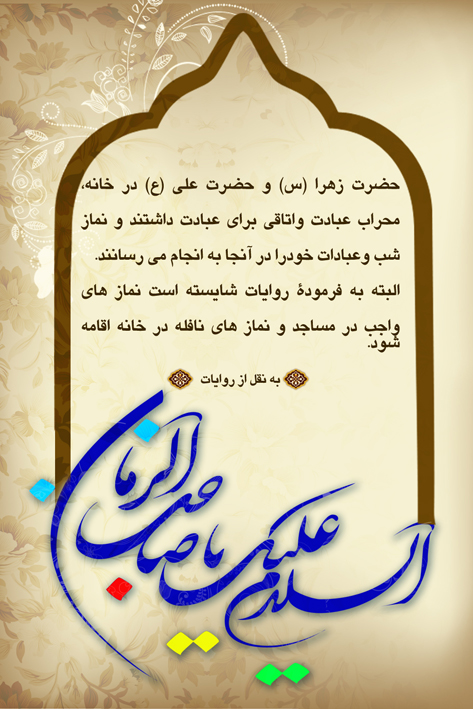 حضرت زهرا (س) و حضرت علی (ع) در خانه،
محراب عبادت واتاقی برای عبادت داشتند و نماز
شب وعبادات خودرا در آنجا به انجام می رسانند.
البته به فرمودهٔ روایات شایسته است نماز های
واجب در مساجد و نماز های نافله در خانه اقامه
شود.
به نقل از روایات
السلام علیک یا صاحب الزمان